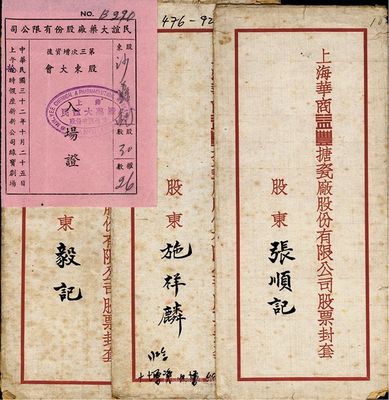 NO. B390
民誼大藥廠股份有限公司
第三次增資後
股東大會
入場證
股東
股數 30
權數 26
中華民國三十二年十月二十五日
上午 時假座新新公司綠寶劇場
476-92
上海華商 搪瓷廠股份有限公司股票封套
股東 張順記
股東 施祥麟
股份有限公司股票封套
股東 毅記